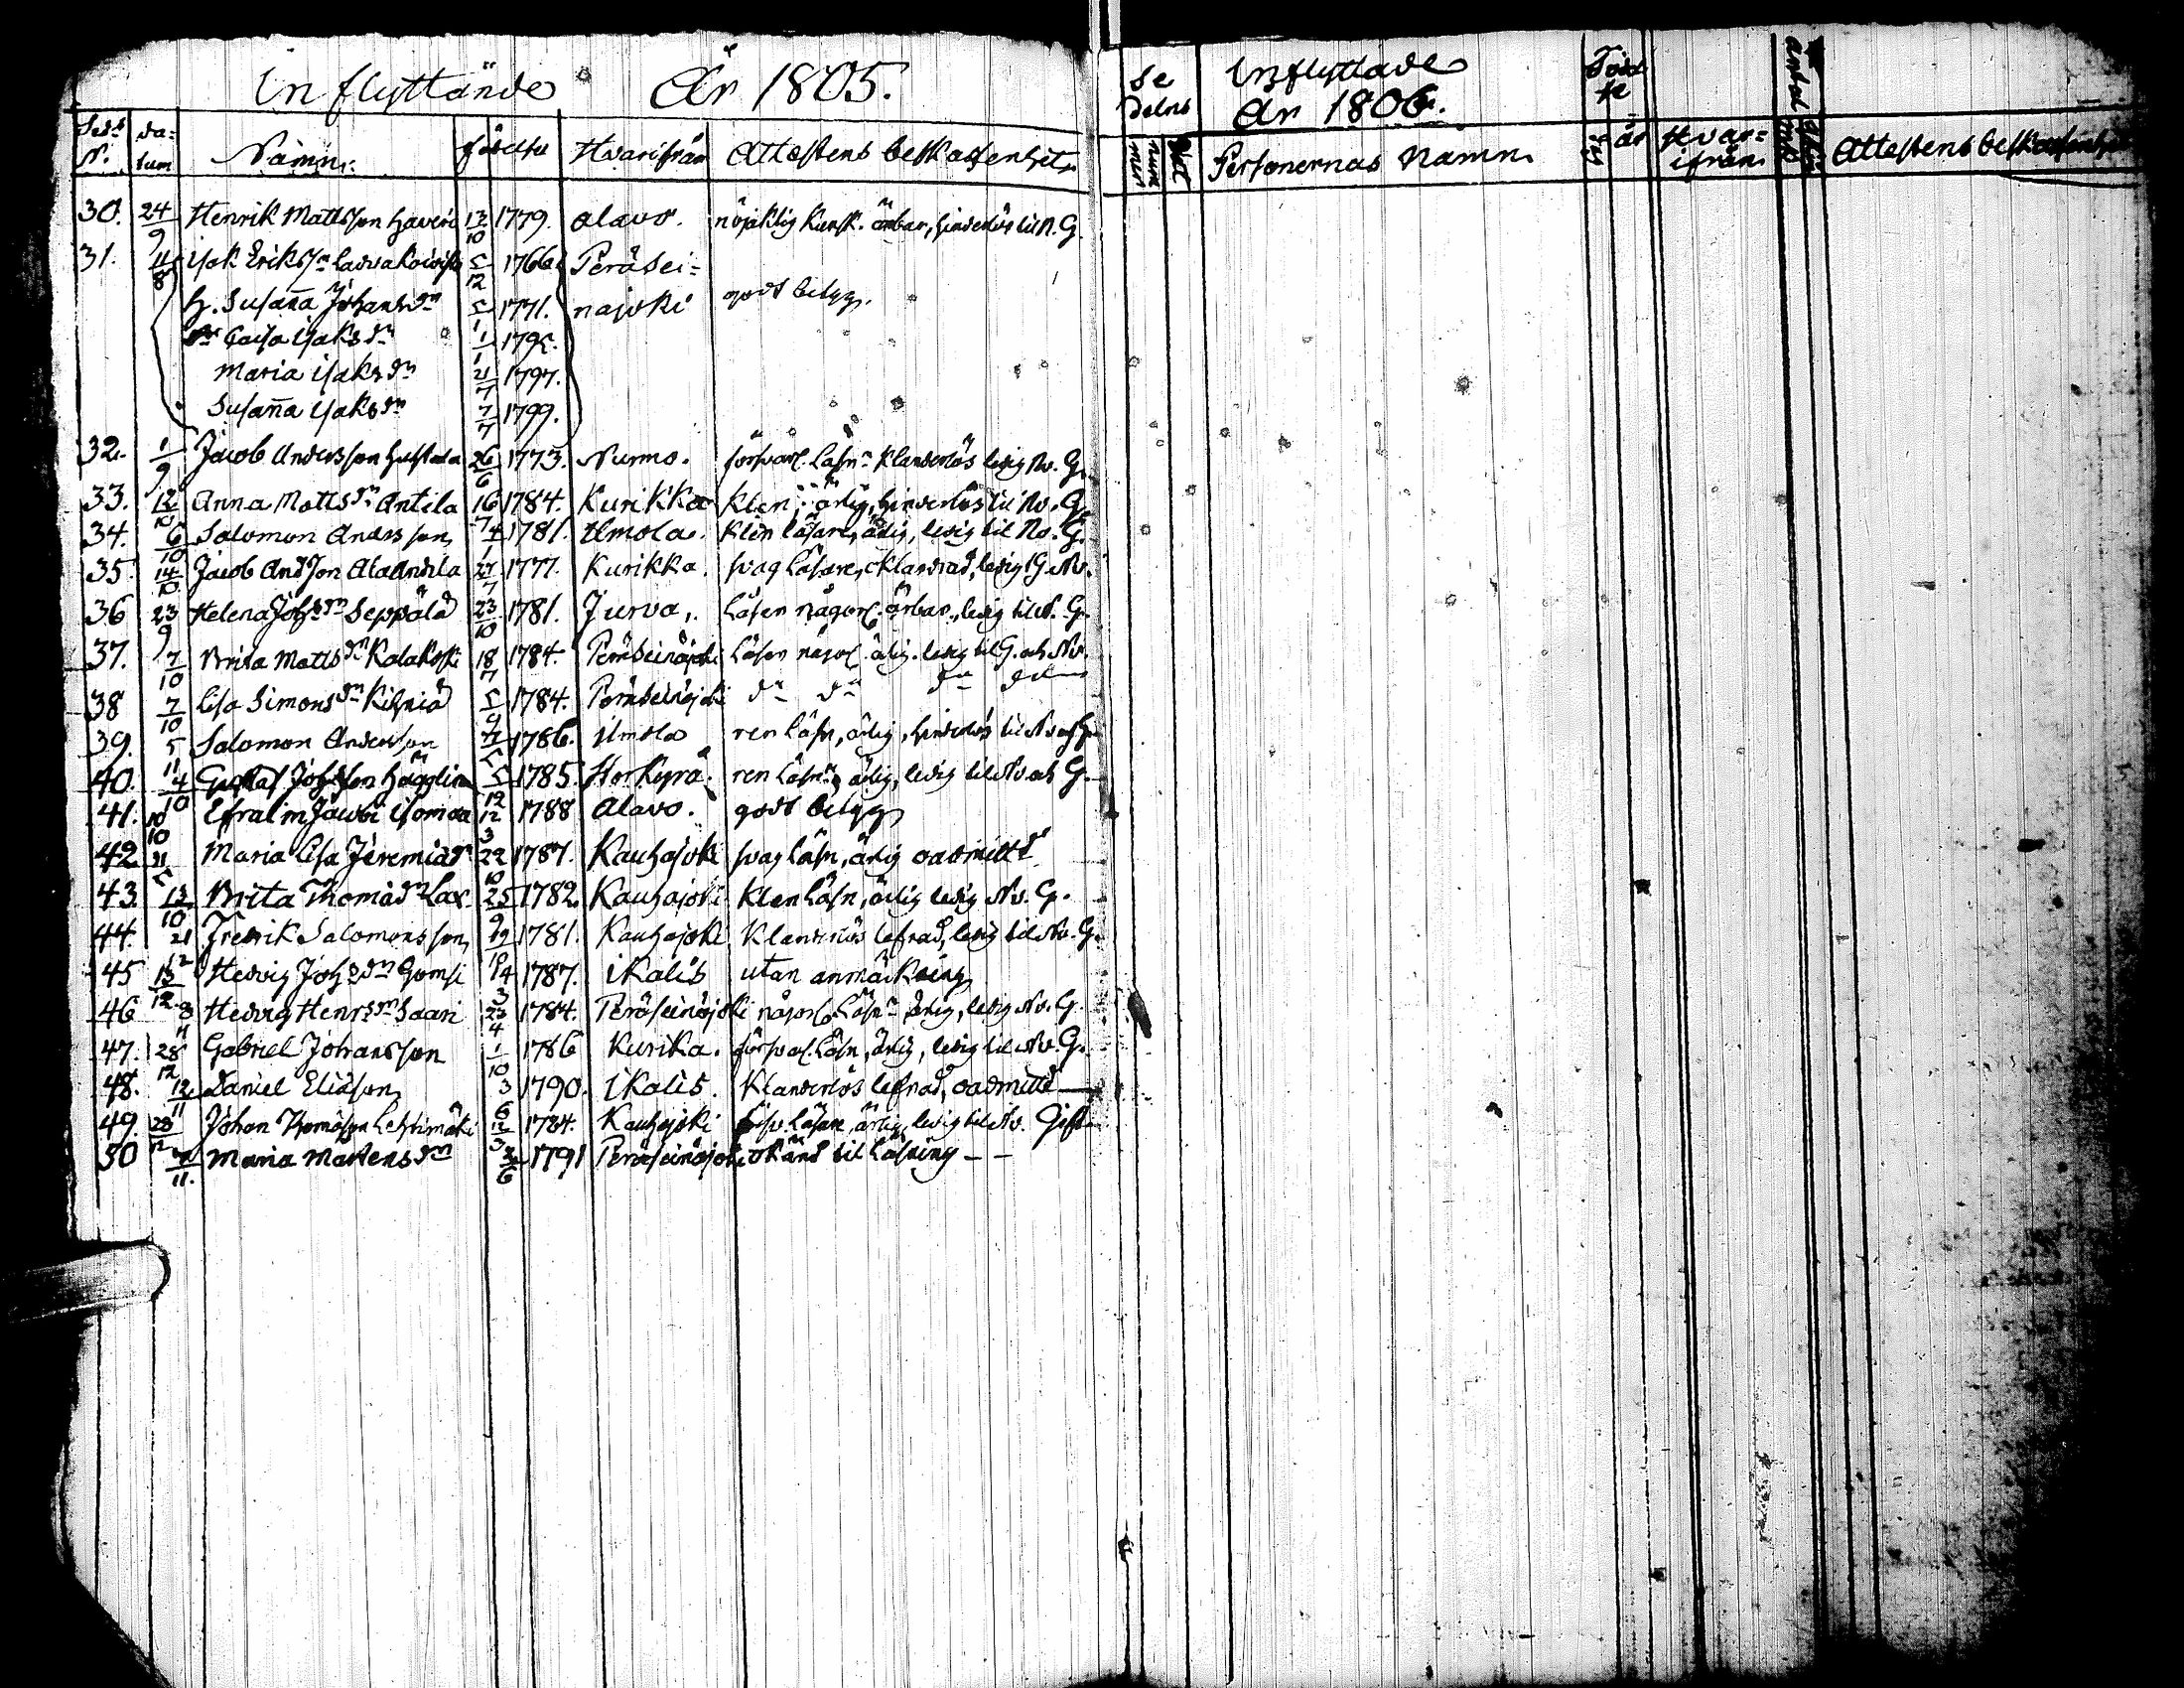 Inflyttände År 1805.
Sed. N. da-tum Namn. födelse Hvarifrån Attestens beskaffenhet
30. 24/9 Henrik Mattsson Haveri 13/10 1779. Alavo. nöjaktig kunsk. ärbar, hinderlös til N. G.
31. 4/8 Isak Eriks sn 5/12 1766 Peräsei-
H. Susaña Johans dr 5/1 1771. najoki godt betyg.
Caisa Isaks dr 1/1 1795.
Maria Isaks dr 21/7 1797.
Susaña Isaks dr 7/7 1799.
32. 1/9 Jacob Andersson 26/6 1773. Nurmo. försvarl. läsn. klanderlös ledig Nv. G.
33. 12/10 Anna Matts dr Antila 16/7 1784. Kurikka klen, ärlig, hinderlös til Nv. G.
34. 6/10 Salomon Andersson 4/1 1781. Ilmola. klen läsare, ärlig, ledig til Nv. G.
35. 14/10 Jacob And.son Ala Andila 27/7 1777. Kurikka. svag läsare, oklandrad, ledig G. Nv.
36 23/9 Helena Johs dr Seppälä 23/10 1781. Jurva. läsen någorl. ärbar, ledig til N. G.
37. 7/10 Brita Matts dr Kalakoski 18/7 1784. Peräseinäjoki läsen någorl. ärlig. ledig til G. och Nv.
38 7/10 Lisa Simons dr Kihniä 5/9 1784. Peräseinäjoki do do do do
39. 5/11 Salomon Andersson 1786. Ilmola ren läsn, ärlig, hinderlös til Nv och G
40. 4/10 Gustaf Johsson Hägglin 5/12 1785. Storkyrå. ren läsn, ärlig, ledig til Nv och G.
41. 10/10 Efraim Jacobs Isomaa 12/3 1788 Alavo. godt betyg
42 21 Maria Lisa Jeremiä dr 22/10 1787. Kauhajoki svag läsn, ärlig oadmitt
43. 13/10 Brita Thomæ dr Lax 25/9 1782. Kauhajoki klen läsn, ärlig ledig Nv. G.
44. 21/12 Fredrik Salomonsson 19/10 1781. Kauhajoki klanderlös lefnad, ledig til Nv. G.
45 15/12 Hedvig Johs dr 14/3 1787. Ikalis utan anmärkning
46 8/11 Hedvig Henrs dr Saari 23/4 1784. Peräseinäjoki någorl. läsn ärlig, ledig Nv. G.
47. 28/12 Gabriel Johansson 1/10 1786 Kurika. försvarl. läsn, ärlig, ledig til Nv. G.
48. 12/11 Daniel Eliasson 3/6 1790. Ikalis. klanderlös lefnad, oadmitt
49. 28/12 Johan Thomasson Lehtimäki 12/3 1784. Kauhajoki läsare, ärlig, ledig til Nv. Gift
50 11. Maria Mårtens dr 6 1791 Peräseinäjoki okänd til läsning – –
Se delns Inflyttade År 1806. Född se
Personernas Namn. år Hvar-ifrån Attestens beskaffenh